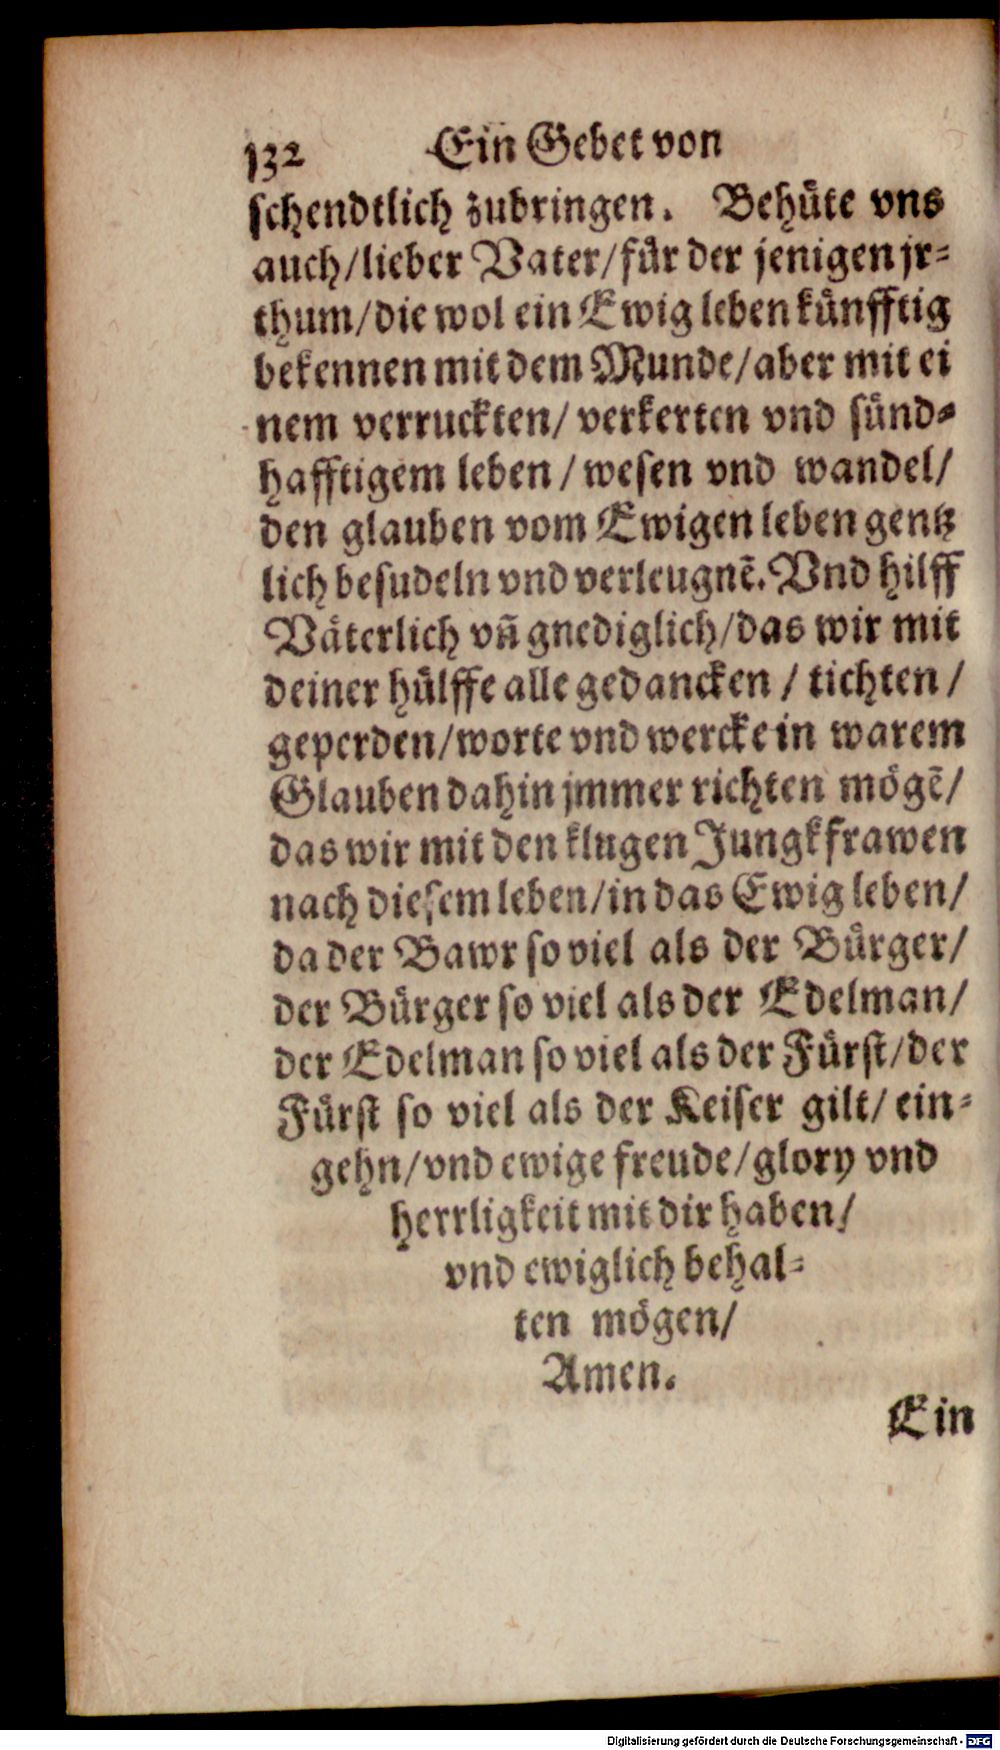 132 Ein Gebet von
schendtlich zubringen. Behüte vns
auch/lieber Vater/für der jenigen jr-
thum/die wol ein Ewig leben künfftig
bekennen mit dem Munde/aber mit ei
nem verruckten/ verkerten vnd sünd-
hafftigem leben/wesen vnd wandel/
den glauben vom Ewigen leben gentz
lich besudeln vnd verleugnē. Vnd hilff
Väterlich vñ gnediglich/das wir mit
deiner hülffe alle gedancken/ tichten/
geperden/worte vnd wercke in warem
Glauben dahin jmmer richten mögē/
das wir mit den klugen Jungkfrawen
nach diesem leben/in das Ewig leben/
da der Bawr so viel als der Bürger/
der Bürger so viel als der Edelman/
der Edelman so viel als der Fürst/der
Fürst so viel als der Keiser gilt/ ein-
gehn/vnd ewige freude/glory vnd
herrligkeit mit dir haben/
vnd ewiglich behal-
ten mögen/
Amen.
Ein
Digitalisierung gefördert durch die Deutsche Forschungsgemeinschaft - DFG